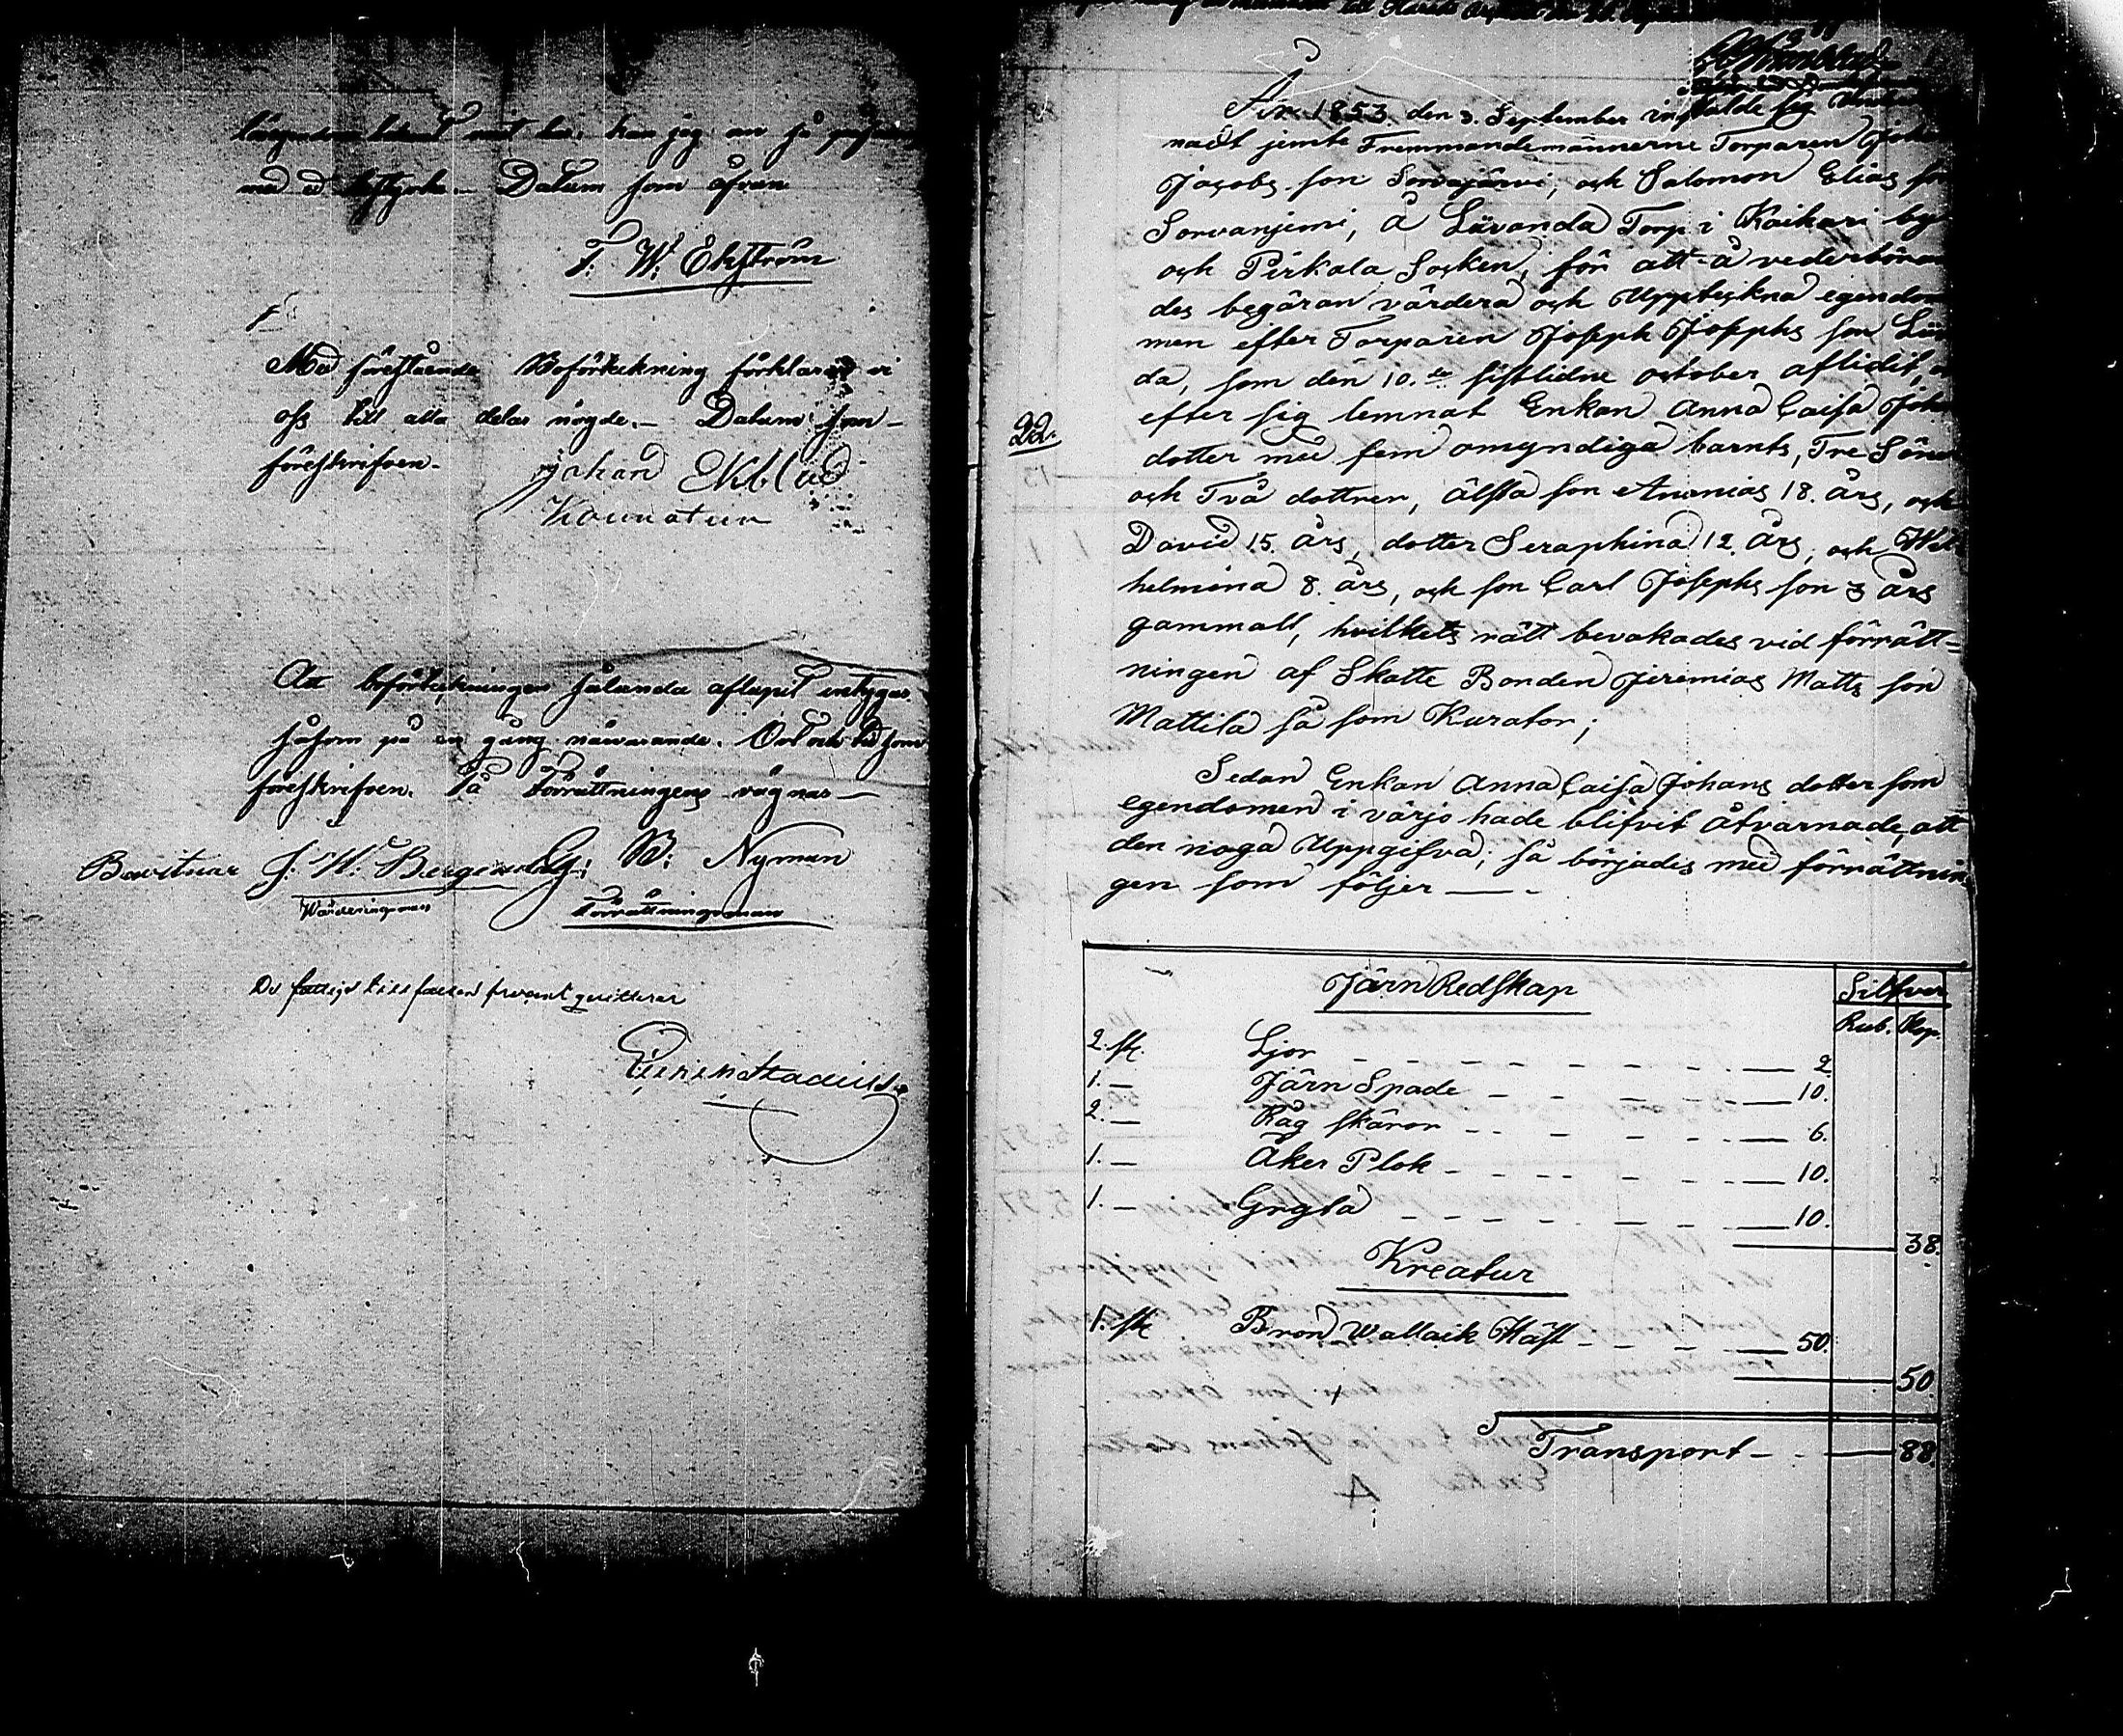 med ed bestyrka. Datum som ofvan
F. W. Ekström
Med föreståendе Boförtekning förklarar vi
oss till alla delar nögde. Datum som
föreskrifven.
Johan Ekblad
Att boförtekningen sålunda aflupit intygar
såsom på en gång närvarande. Ort och tid som
föreskrifven. På Förrättningens vägnar
G. W. Nyman
Värderingsman Förrättningsman
De fattige till procent quitterar
År 1853 den 3. September instälde sig
nadt jemte Fremmandemännerne Torparen Joha
Jacobs son Sorvajärvi, och Salomon Elias so
Sorvanjemi, å Livanda Torp i Kaikari by
och Pirkala Socken, för att å vederböran
des begäran värdera och Uppteckna egendo
men efter Torparen Joseph Josephs son Liv
da, som den 10.de sistlidne october aflidit, o
efter sig lemnat Enkan Anna Caisa Joha
22.
dotter med fem omyndiga barnts, Tre Söner
och Två dottrer, älsta son Ananias 18. års, och
David 15. års, dotter Seraphina 12. års, och Wil
helmina 8. års, och son Carl Josephs son 3 års
gammalt, hvilkets rätt bevakades vid förrätt=
ningen af Skatte Bonden Jeremias Matts son
Mattila så som Kurator;
Sedan Enkan Anna Caisa Johans dotter som
egendomen i värjo hade blifvit åtvarnade, att
den noga Uppgifva; så börjades med förrättnin
gen som följer
Järn Redskap Silfver
Rub. Kop.
2. st. Ljor 2
1. Järn Spade 10.
2. Råg skäror 6.
1. Åker Plok 10.
1. Gryta 10.
38.
Kreatur
1. st. Bron Wallaik Häst 50.
50
Transport 88.